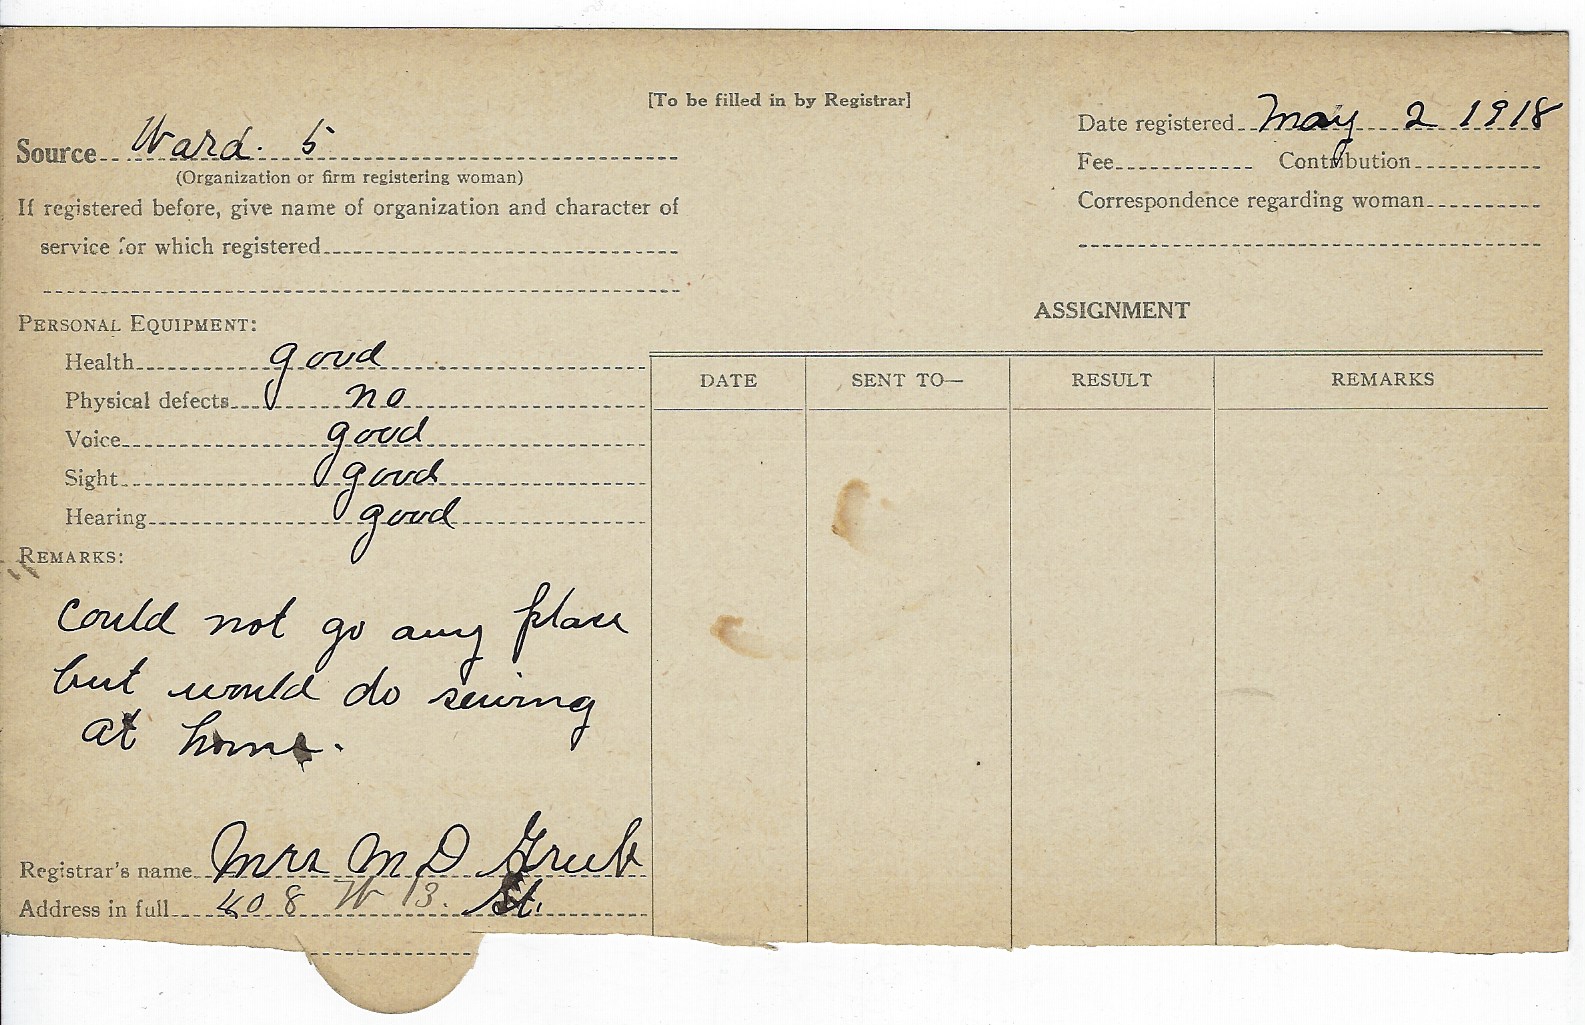 [To be filled in by Registrar]
Source Ward. 5
(Organization or firm registering woman)
If registered before, give name of organization and character of
service for which registered
Date registered May 2 1918
Fee Contribution
Correspondence regarding woman
PERSONAL EQUIPMENT:
Health good
Physical defects no
Voice good
Sight good
Hearing good
REMARKS:
could not go any place
but would do sewing
at home.
Registrar's name Mrs M D Grub
Address in full 408 W 13. St.
ASSIGNMENT
DATE SENT TO— RESULT REMARKS